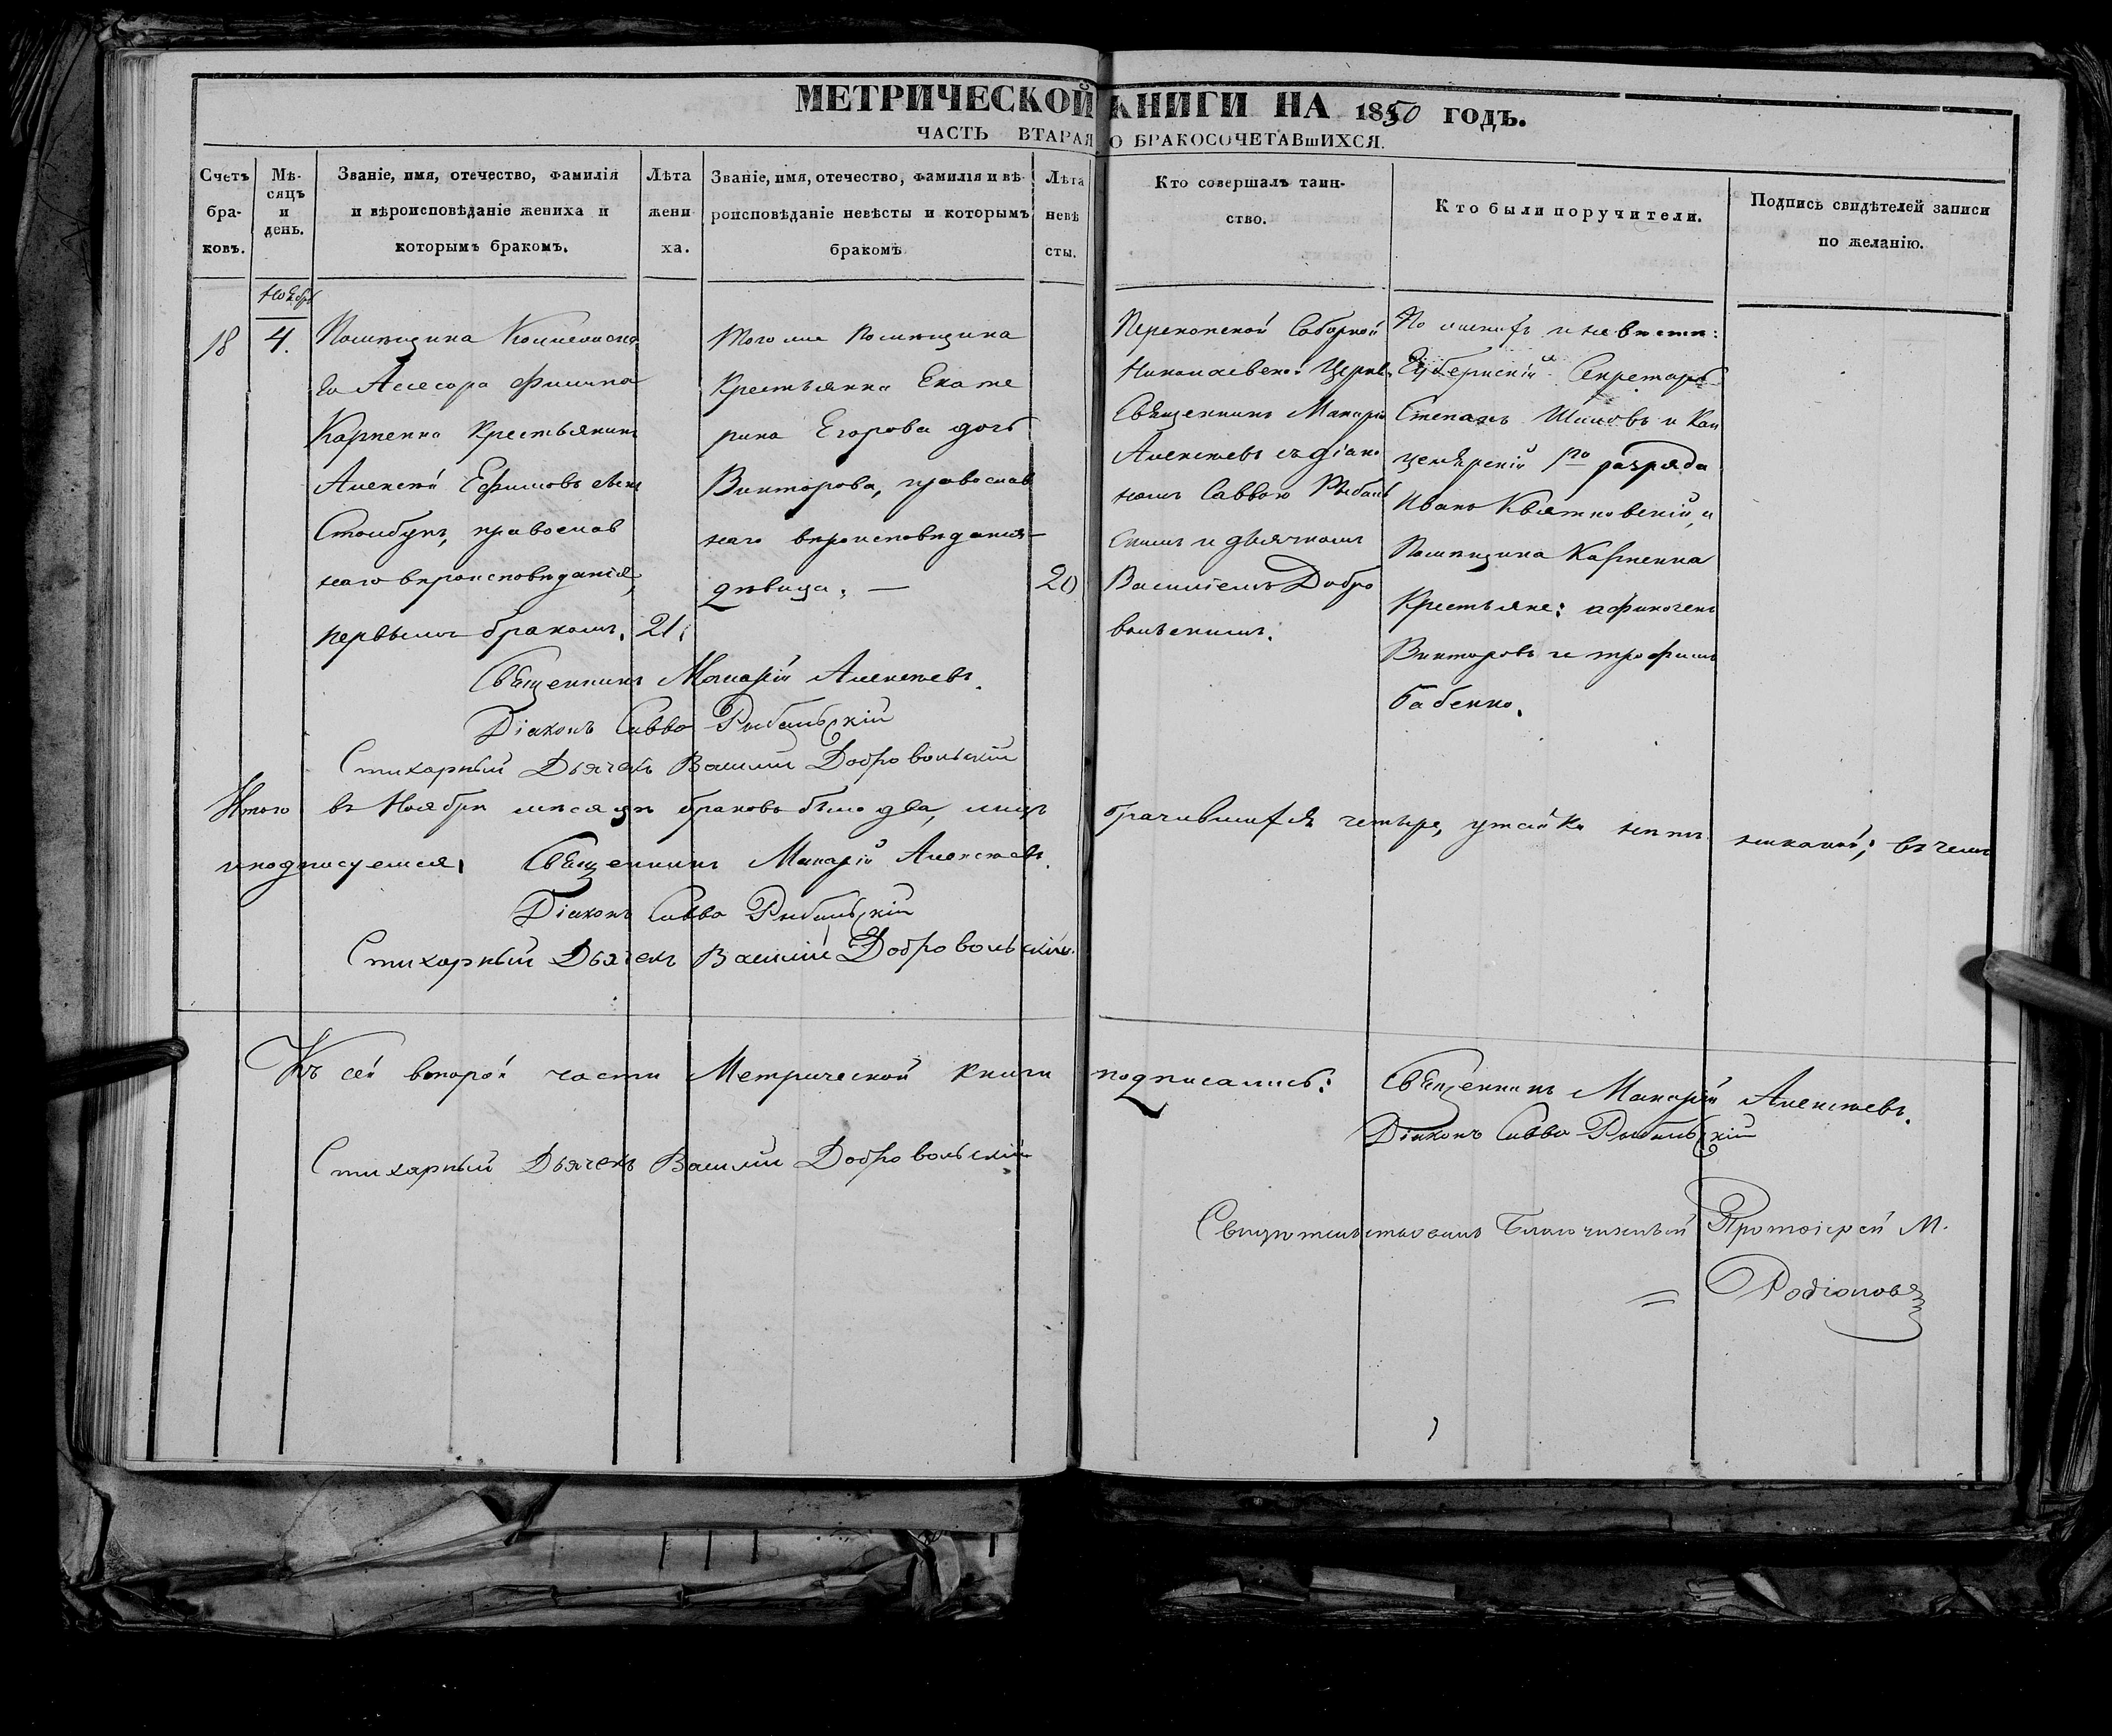 МЕТРИЧЕСКОЙ КНИГИ НА 1850 ГОДЪ.
ЧАСТЬ ВТАРАЯ О БРАКОСОЧЕТАВшИХСЯ.
Счетъ
бра-
ковъ.
Мѣ-
сяцъ
и
день.
Званіе, имя, отечество, фамилія
и вѣроисповѣданіе жениха и
которымъ бракомъ.
Лѣта
жени
ха.
Званіе, имя, отечество, фамилія и вѣ-
роисповѣданіе невѣсты и которымъ
бракомъ
Лѣта
невѣ
сты.
Кто совершалъ таин-
ство.
Кто были поручители.
Подпись свидѣтелей записи
по желанію.
Ноябрь
18
4.
Помѣщика Коллежска
го Ассесора Филипа
Карпенка Крестьянинъ
Алексѣй Ефимовъ сынъ
Столбунъ, православ
наго вѣроисповѣданія,
первымъ бракомъ.
21.
Того же Помѣщика
Крестьянка Екате
рина Егорова дочь
Викторова, православ
наго вѣроисповѣданія
дѣвица. —
20
Перекопской Соборной
Николаевской Церкв.
Священникъ Макарій
Алексѣевъ съ діако
номъ Саввою Рыбаль
скимъ и дьячкомъ
Василіемъ Добро
вольскимъ.
По женихѣ и невѣсти:
Губернскій Секретарь
Степанъ и Кан
целярскій 1го разряда
Иванъ Квятковскій, и
Помѣщика Карпенка
Крестьяне: афиногенъ
Викторовъ и трофимъ
бабенко.
Священникъ Макарій Алексѣевъ.
Діаконъ Савва Рыбальскій
Стихарный Дьячекъ Василій Добровольскій
Итого въ Ноябрѣ мѣсяцѣ браковъ было два, лицъ брачившихся четыре, утайки нѣтъ никакой; въ чемъ
и подписуемся. Священникъ Макарій Алексѣевъ.
Діаконъ Савва Рыбальскій
Стихарный Дьячекъ Василій Добровольскій.
Къ сей второй части Метрической книги подписались: Священникъ Макарій Алексѣевъ.
Діаконъ Савва Рыбальскій
Стихарный Дьячекъ Василій Добровольскій
Свидѣтельствовалъ Благочинный Протоіерей М.
Родіоновъ